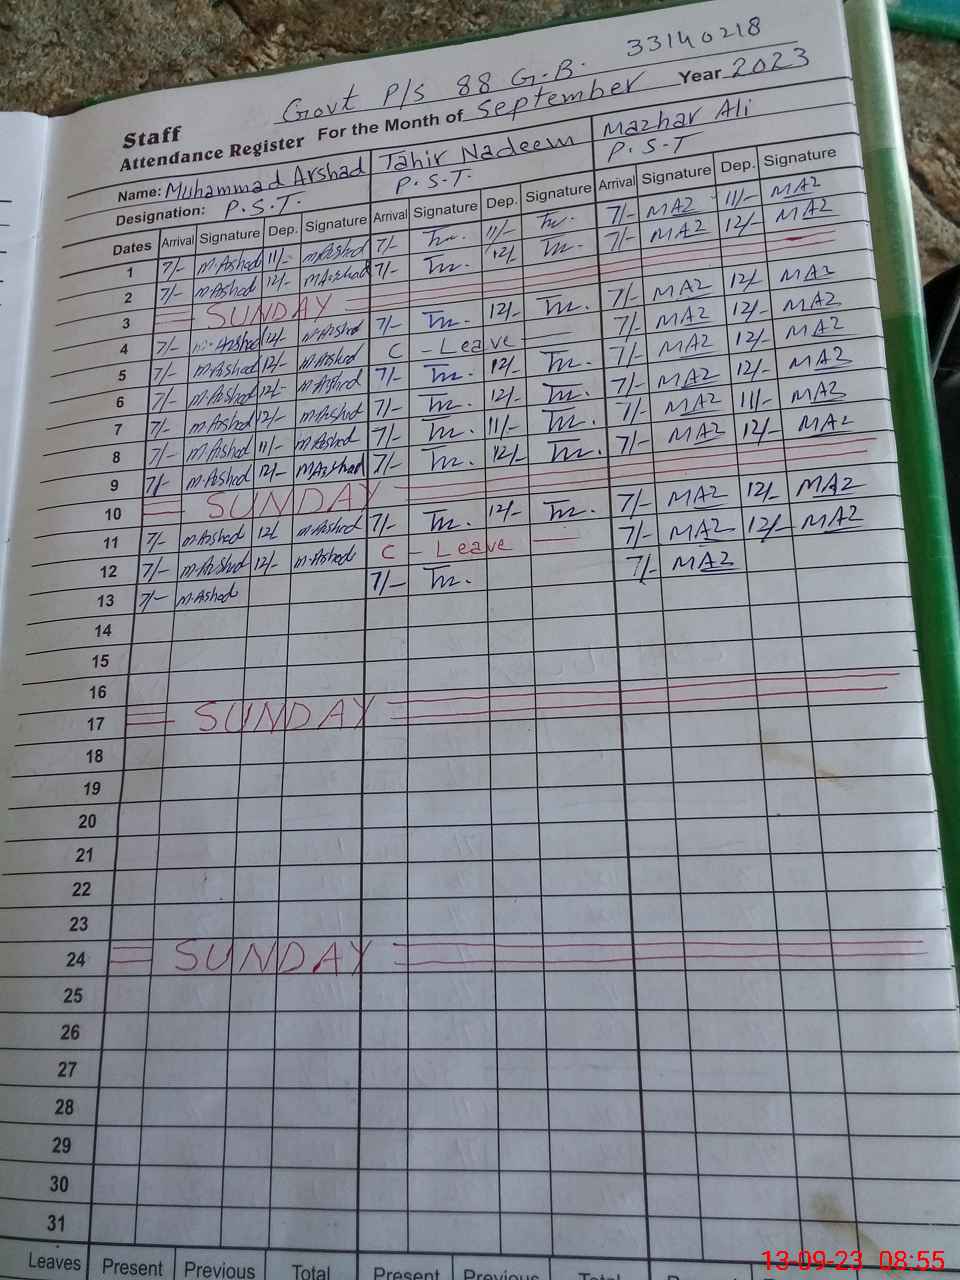 Govt P/S 88 G.B. 33140218
Staff
Attendance Register For the Month of September Year 2023
Name: Muhammad Arshad Tahir Nadeem Mazhar Ali
Designation: P.S.T. P.S.T. P.S.T
Dates Arrival Signature Dep. Signature Arrival Signature Dep. Signature Arrival Signature Dep. Signature
1 7/- m.Arshad 11/- m.Arshad 7/- Tn. 11/- Tn. 7/- MAZ 11/- MAZ
2 7/- m.Arshad 12/- m.Arshad 7/- Tn. 12/- Tn. 7/- MAZ 12/- MAZ
3 SUNDAY
4 7/- m.Arshad 12/- m.Arshad 7/- Tn. 12/- Tn. 7/- MAZ 12/- MAZ
5 7/- m.Arshad 12/- m.Arshad C - Leave 7/- MAZ 12/- MAZ
6 7/- m.Arshad 12/- m.Arshad 7/- Tn. 12/- Tn. 7/- MAZ 12/- MAZ
7 7/- m.Arshad 12/- m.Arshad 7/- Tn. 12/- Tn. 7/- MAZ 12/- MAZ
8 7/- m.Arshad 11/- m.Arshad 7/- Tn. 11/- Tn. 7/- MAZ 11/- MAZ
9 7/- m.Arshad 12/- m.Arshad 7/- Tn. 12/- Tn. 7/- MAZ 12/- MAZ
10 SUNDAY
11 7/- m.Arshad 12/ m.Arshad 7/- Tn. 12/- Tn. 7/- MAZ 12/- MAZ
12 7/- m.Arshad 12/- m.Arshad C - Leave 7/- MAZ 12/- MAZ
13 7/- m.Arshad 7/- Tn. 7/- MAZ
14
15
16
17 SUNDAY
18
19
20
21
22
23
24 SUNDAY
25
26
27
28
29
30
31
Leaves Present Previous Total Present Previous Total
13-09-23 08:55